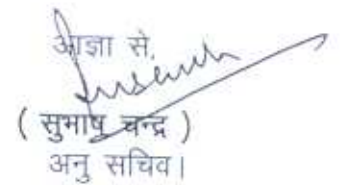 आज्ञा से,
( सुभाष चन्द्र )
अनु सचिव।